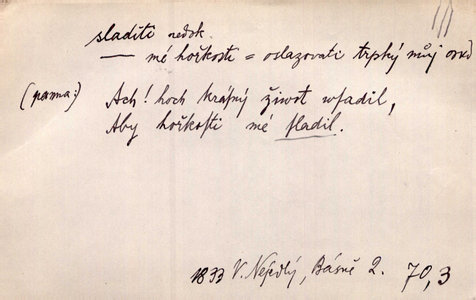 sladiti nedok.
— mé hořkosti = oslazovati trpký můj osud
(panna:) Ach! hoch krásný život wsadil,
Aby hořkosti mé sladil.
1833 V. Nejedlý, Básně 2. 70,3